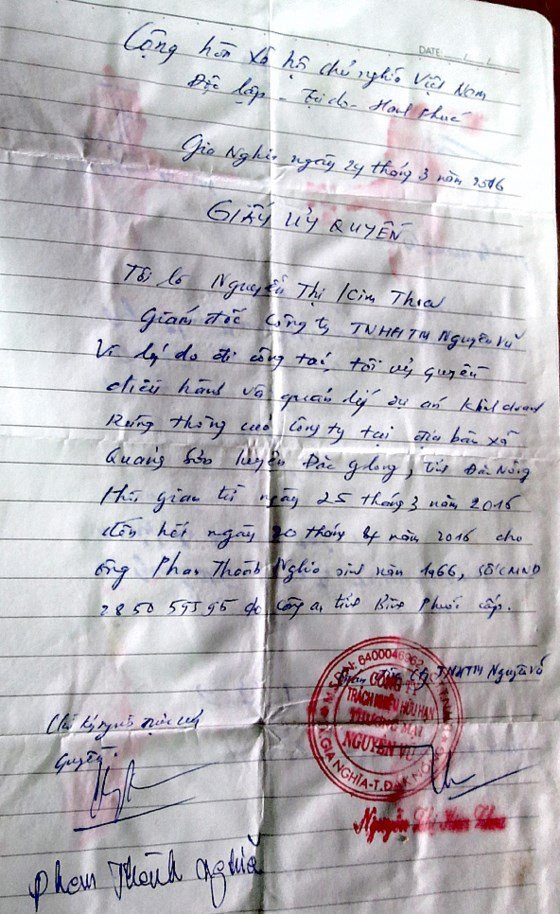 DATE
Cộng hòa xã hội chủ nghĩa Việt Nam
Độc lập - Tự do - Hạnh Phúc
Gia Nghĩa ngày 24 tháng 3 năm 2016
GIẤY ỦY QUYỀN
Tôi là Nguyễn Thị Kim Thoa
Giám đốc Công ty TNHH TM Nguyên Vũ
Vì lý do đi công tác, tôi ủy quyền
điều hành và quản lý dự án
Rừng thông của Công ty tại địa bàn xã
Quảng Sơn huyện Đăk glong, tỉnh Đăk Nông
thời gian từ ngày 25 tháng 3 năm 2016
đến hết ngày 20 tháng 4 năm 2016 cho
ông Phan Thành Nghĩa sinh năm 1966, số CMND
285055595 do công an tỉnh Bình Phước cấp.
TNHH TM Nguyên Vũ
CÔNG TY
TRÁCH NHIỆM HỮU HẠN
THƯƠNG MẠI
NGUYÊN VŨ
GIA NGHĨA - T. ĐĂK NÔNG
Chữ ký người được ủy
quyền.
Nguyễn Thị Kim Thoa
Phan Thành Nghĩa